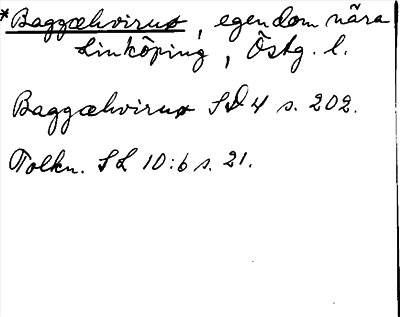 *Baggæhvirus, egendom nära
Linköping, Östg. l.
Baggæhvirus SD 4 s. 202.
Tolkn. SL 10:6 s. 21.